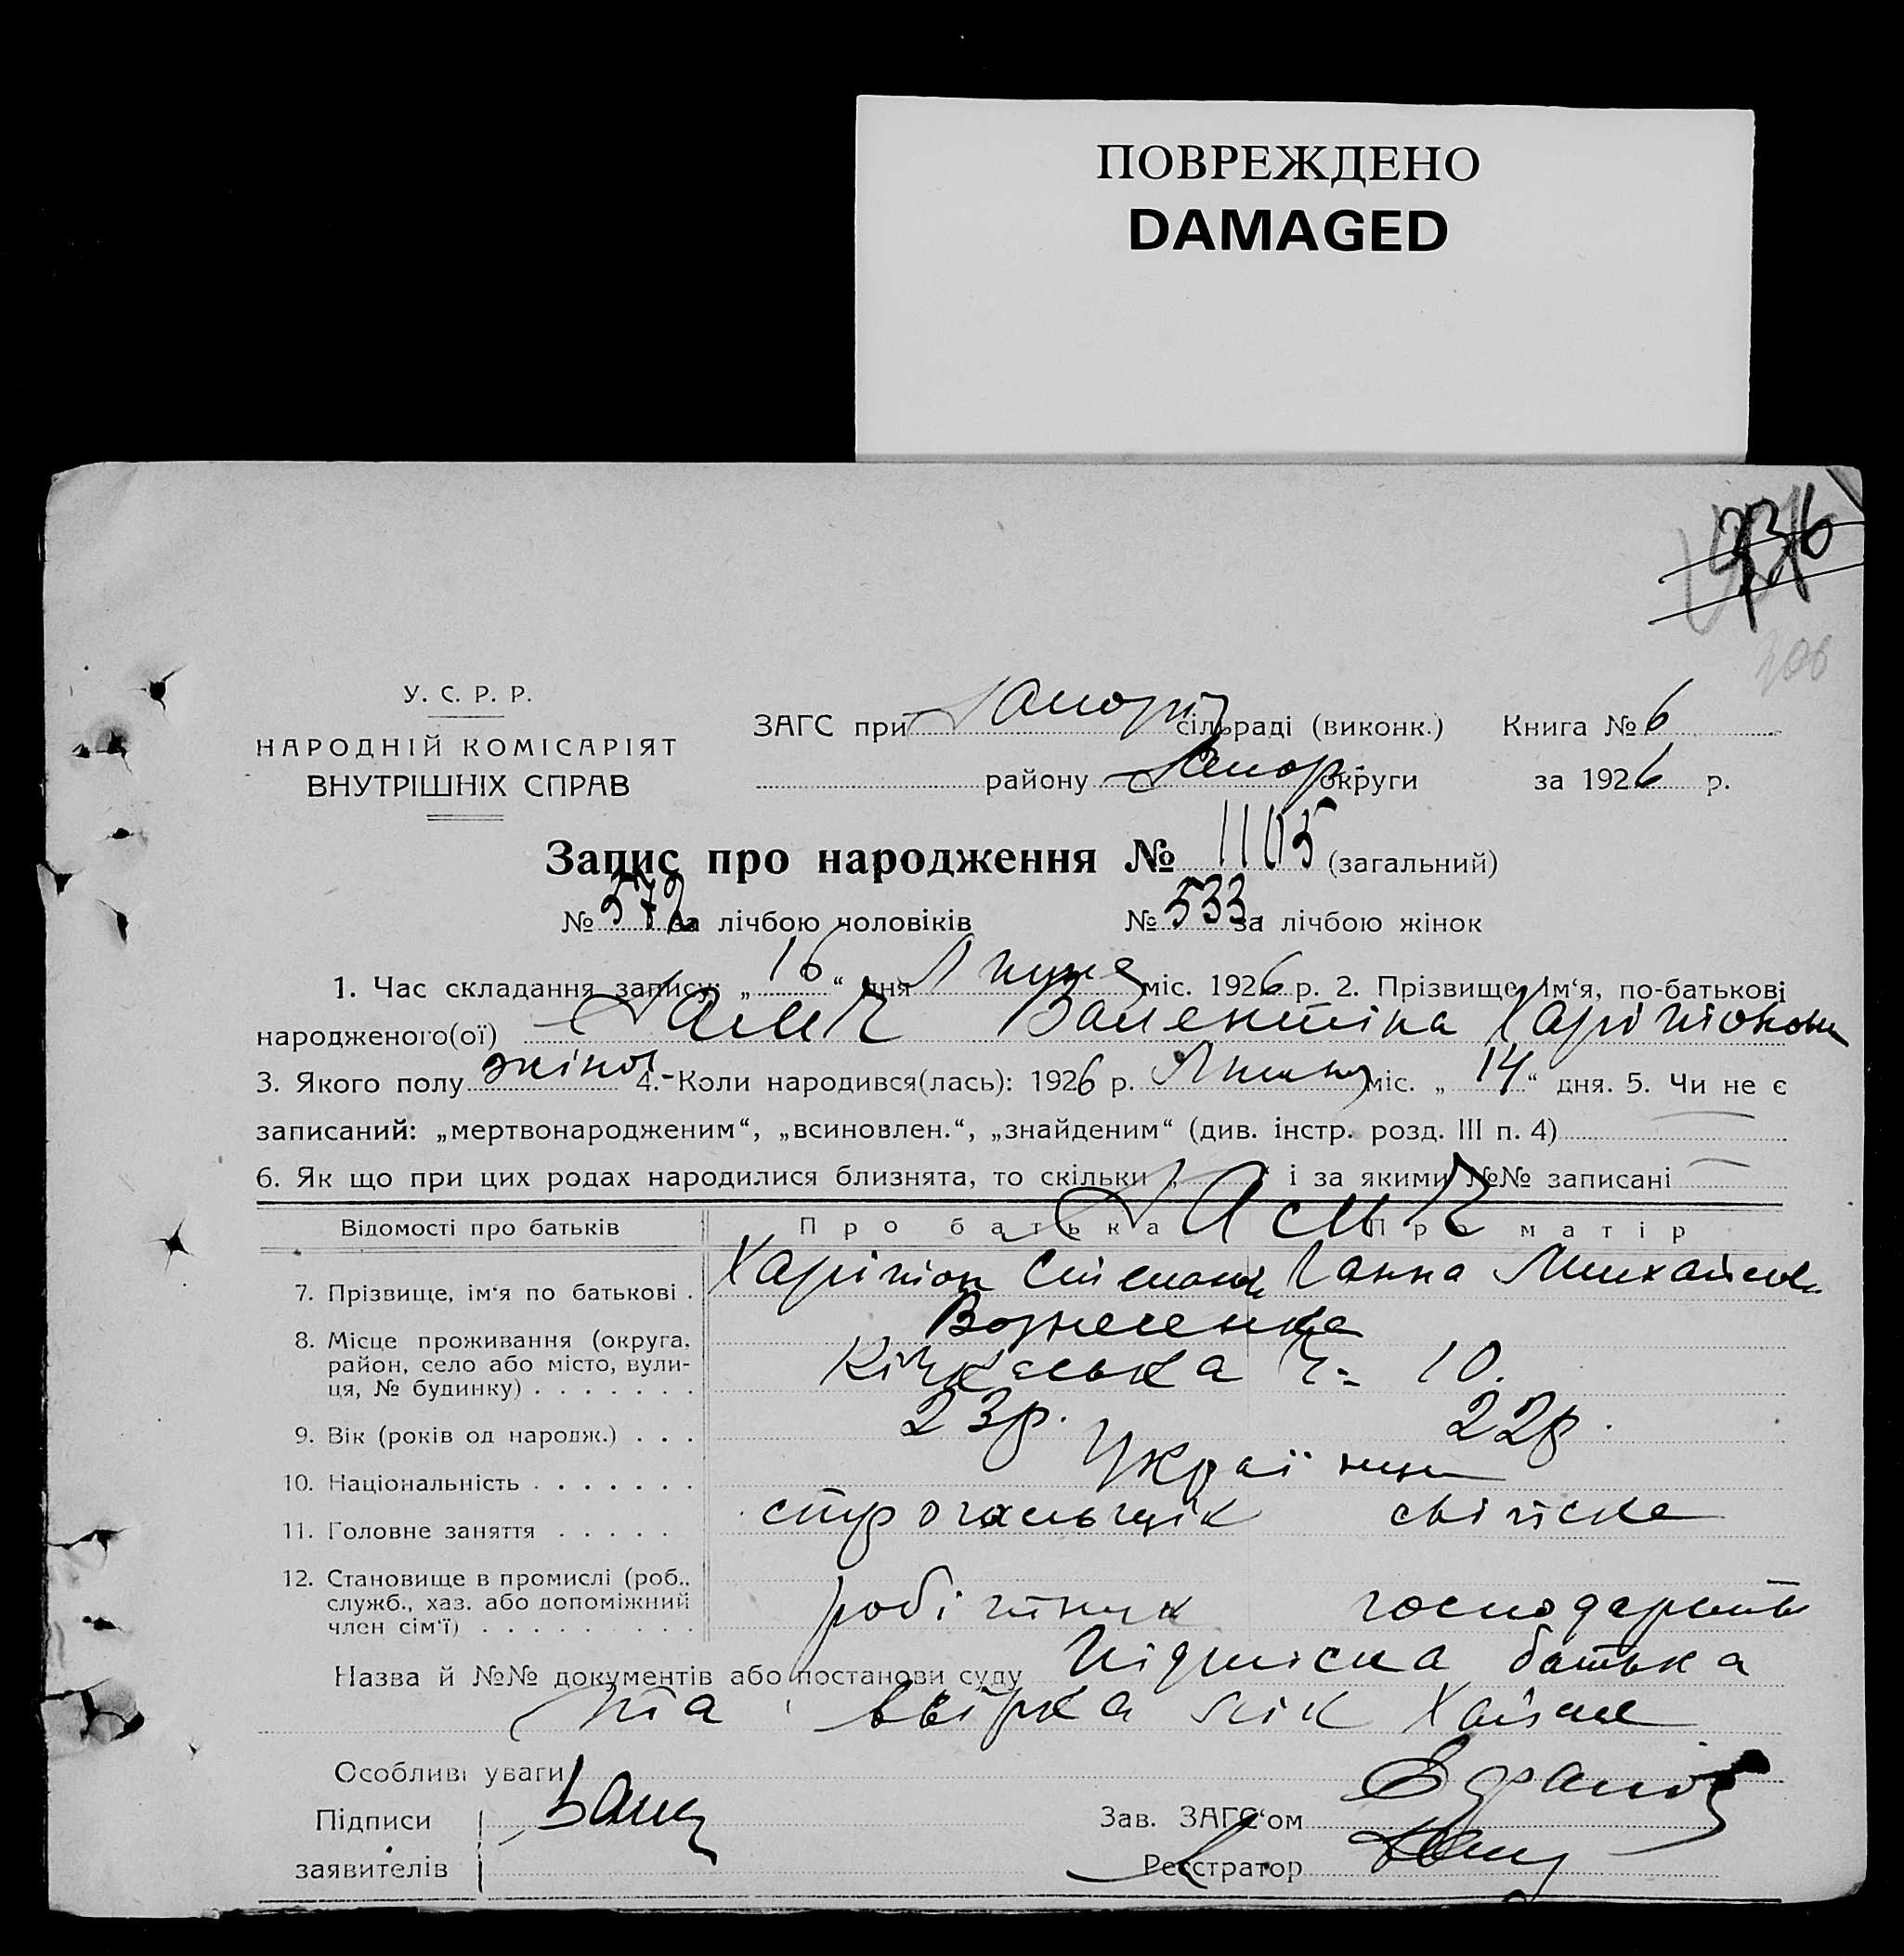 ПОВРЕЖДЕНО
DAMAGED
736
306
У. С. Р. Р.
НАРОДНІЙ КОМІСАРІЯТ
ВНУТРІШНІХ СПРАВ
ЗАГС при Запоріз сільраді (виконк.) Книга № 6
району Запор. округи за 1926 р.
Запис про народження № 1105 (загальний)
№ 572 за лічбою чоловіків № 533 за лічбою жінок
1. Час складання запису: „16“ дня Липня міс. 1926 р. 2. Прізвище, ім‘я, по-батькові
народженого(ої) Валентіна Харітіоновн
3. Якого полу жіноч. 4. Коли народився(лась): 1926 р. Липня міс. „14“ дня. 5. Чи не є
записаний: „мертвонародженим“, „всиновлен.“, „знайденим“ (див. інстр. розд. III п. 4)
6. Як що при цих родах народилися близнята, то скільки і за якими №№ записані
Відомості про батьків Про батька Про матір
7. Прізвище, ім‘я по батькові . Харітіон Степанов Ганна Михайлов
8. Місце проживання (округа, Вознесенка
район, село або місто, вули- Кічкаська 10.
ця, № будинку) . . . . . . .
9. Вік (років од народж.) . . . 23р. 22р.
10. Національність . . . . . . . Українці
11. Головне заняття . . . . . строгальщік
12. Становище в промислі (роб.,
служб., хаз. або допоміжний робітник господарств
член сім‘ї) . . . . . . . . .
Назва й №№ документів або постанови суду Підписка батька
та
Особливі уваги
Підписи Зав. ЗАГС‘ом
заявителів Реєстратор